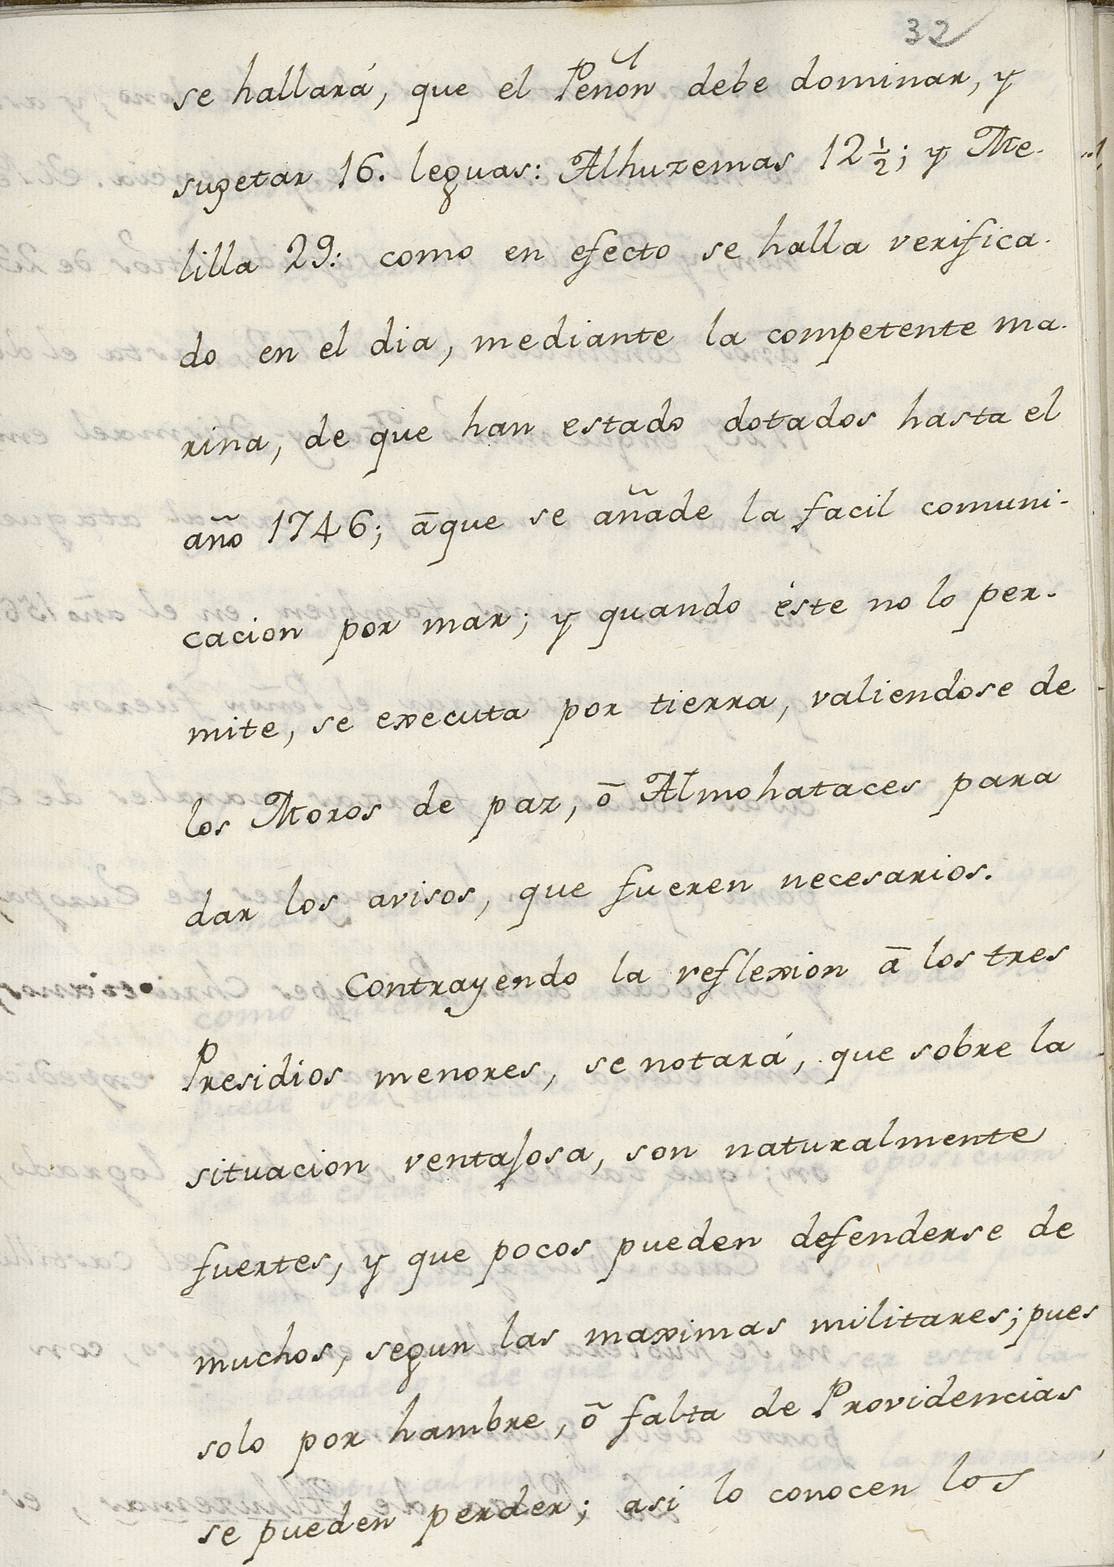 32
se hallará, que el Peñon debe dominar, y
sugetar 16. leguas: Alhuzemas 12½; y Me-
lilla 29: como en efecto se halla verifica-
do en el dia, mediante la competente ma-
rina, de que han estado dotados hasta el
año 1746; āque se añade la facil comuni-
cacion por mar; y quando éste no lo per-
mite, se executa por tierra, valiendose de
los Moros de paz, ō Almohataces para
dar los avisos, que fueren necesarios.
Contrayendo la reflexion ā los tres
Presidios menores, se notará, que sobre la
situacion ventajosa, son naturalmente
fuertes, y que pocos pueden defenderse de
muchos, segun las maximas militares; pues
solo por hambre, ō falta de Providencias
se pueden perder; asi lo conocen los